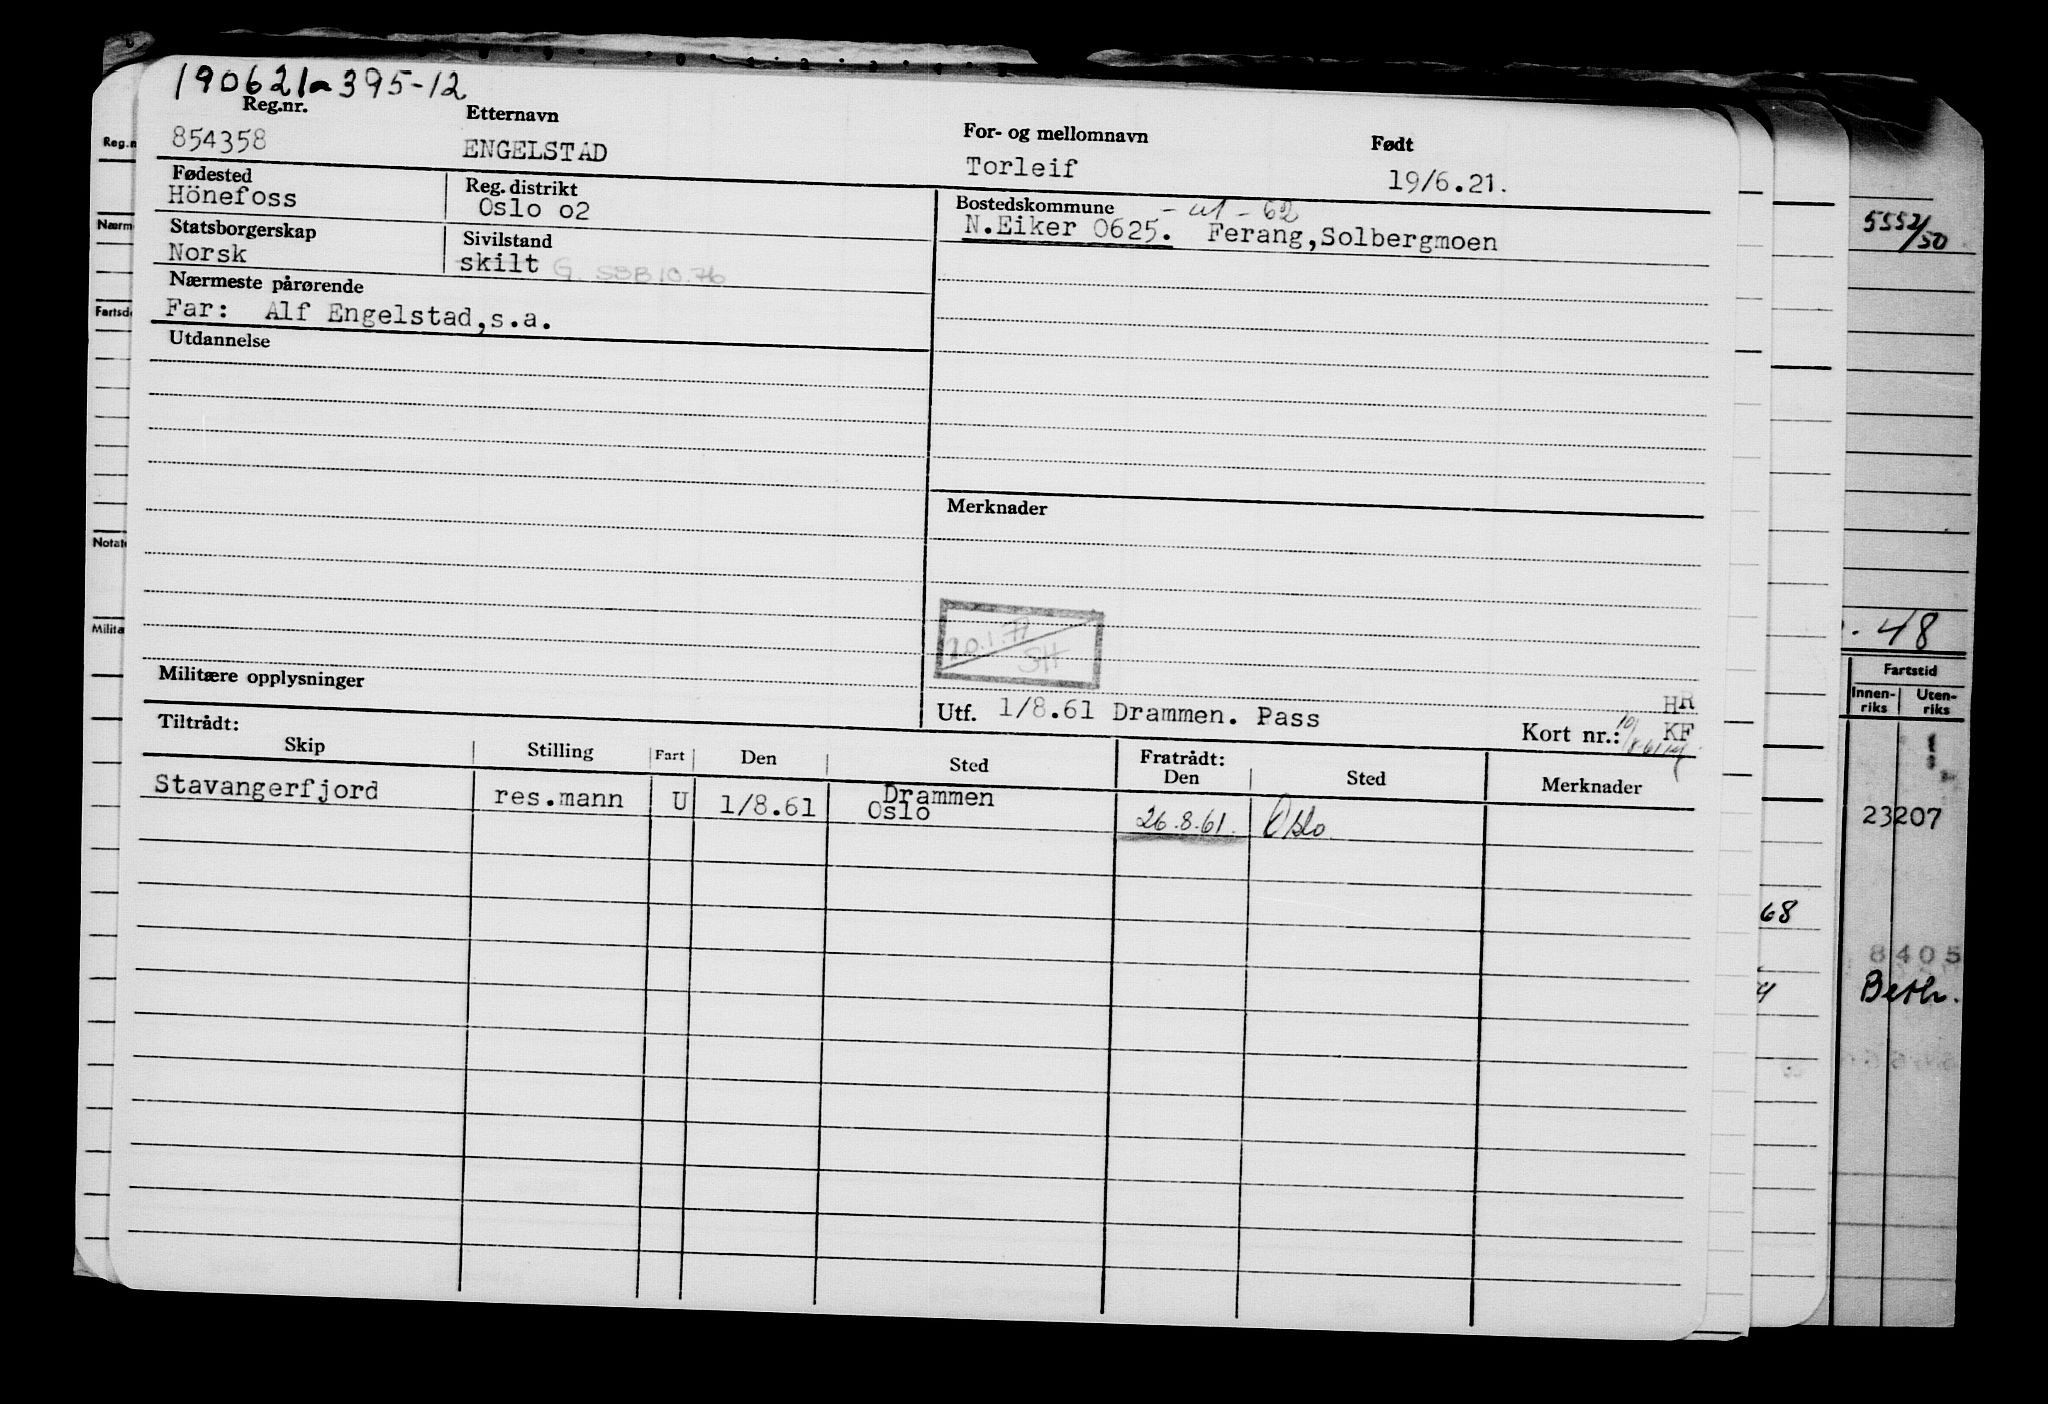 190621a 395-12
Reg.nr. Etternavn For- og mellomnavn Født
854358 ENGELSTAD Torleif 19/6.21.
Fødested Reg. distrikt Bostedskommune - ut - 62
Hönefoss Oslo o2 N.Eiker 0625. Ferang,Solbergmoen
Statsborgerskap Sivilstand
Norsk skilt G. SBB 10.76
Nærmeste pårørende
Far: Alf Engelstad,s.a.
Utdannelse
Merknader
20.1.77
SH
Militære opplysninger
HR
Utf. 1/8.61 Drammen. Pass Kort nr.: KF
Tiltrådt: Fratrådt:
Skip Stilling Fart Den Sted Den Sted Merknader
Stavangerfjord res.mann U 1/8.61 Drammen
Oslo 26.8.61. Oslo.
5552/50
. 48
Fartstid
Innen-
riks
Uten-
riks
23207
68
8405
Beth.
Reg.n
Nærm
Fartsd
Notat
Milita